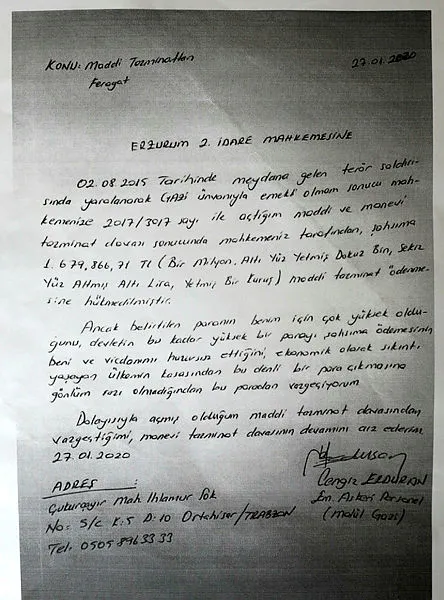 KONU: Maddi Tazminattan
Feragat
27.01.2020
ERZURUM 2. İDARE MAHKEMESİNE
02.08.2015 Tarihinde meydana gelen terör saldırı-
sında yaralanarak GAZİ ünvanıyla emekli olmam sonucu mah-
kemenize 2017/3017 sayı ile açtığım maddi ve manevi
tazminat davası sonucunda mahkemeniz tarafından, şahsıma
1.679,866,71 Tl (Bir Milyon, Altı Yüz Yetmiş Dokuz Bin, Sekiz
Yüz Altmış Altı Lira, Yetmiş Bir Kuruş) maddi tazminat ödenme-
sine hükmedilmiştir.
Ancak belirtilen paranın benim için çok yüksek oldu-
ğunu, devletin bu kadar yüksek bir parayı şahsıma ödemesinin
beni ve vicdanımı huzursuz ettiğini, ekonomik olarak sıkıntı
yaşayan ülkemin kasasından bu denli bir para çıkmasına
gönlüm razı olmadığından bu paradan vazgeçiyorum
Dolayısıyla açmış olduğum maddi tazminat davasından
vazgeçtiğimi, manevi tazminat davasının devamını arz ederim
27.01.2020
ADRES :
Çukurçayır Mah Ihlamur Sok
No: 5/C K:5 D:10 Ortahisar/TRABZON
Tel: 0505 896 33 33
Cengiz ERDURAN
Em. Askeri Personel
(Malül Gazi)